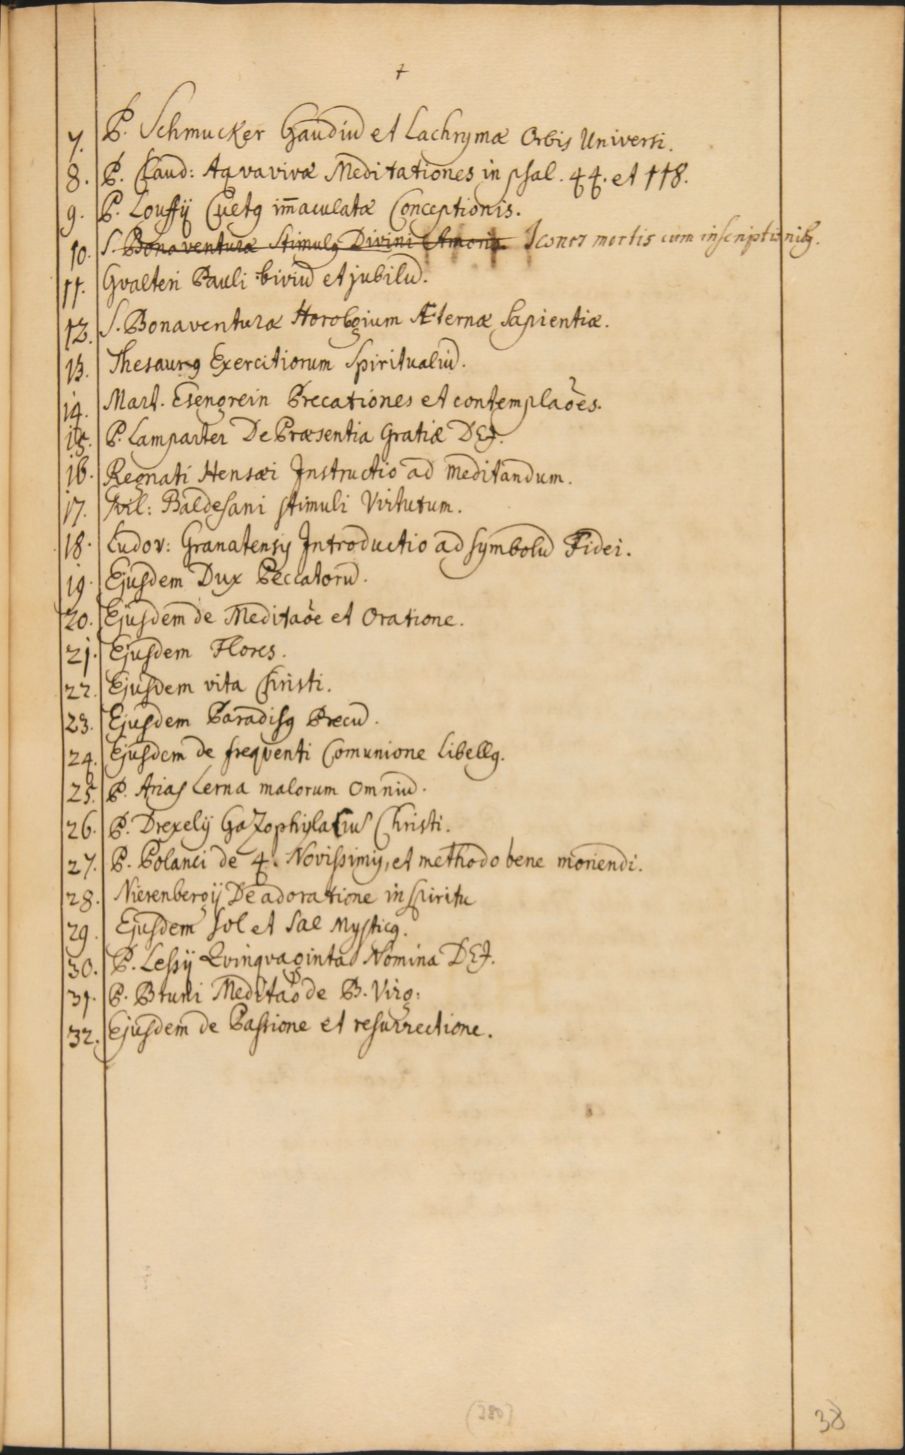 †
7. P. Schmucker Gaudiū et Lachrymæ Orbis Universi.
8. P. Claud: Aqvavivæ Meditationes in psal. 44. et 118.
9. P. Louffij Cultꝰ im̄aculatæ Conceptionis.
10. S. Bonaventuræ Stimulꝰ Divini Amoris. Icones mortis cum inscriptionibꝰ.
11. Gvalteri Pauli biviū et jubilū.
12. S. Bonaventuræ Horologium Æternæ Sapientiæ.
13. Thesaurꝰ Exercitiorum Spiritualiū.
14. Mart. Esengrein Precationes et contemplaōes.
15. P. Lamparter De Præsentia Gratiæ DEJ.
16. Regnati Hensæi Instructio ad meditandum.
17. Wil: Baldesani stimuli Virtutum.
18. Ludov: Granatensis Introductio ad symbolū Fidei.
19. Ejusdem Dux Peccatorū.
20. Ejusdem de Meditaōe et Oratione.
21. Ejusdem Flores.
22. Ejusdem vita Christi.
23. Ejusdem Paradisꝰ Precū.
24. Ejusdem de freqventi Comunione Libellꝰ.
25. P. Arias Lerna malorum omniū.
26. P. Drexelij Gazophylaciū Christi.
27. P. Polanci de 4. Novissimis, et methodo bene moriendi.
28. Nierenbergij De adoratione in spiritu
29. Ejusdem Sol et Sal Mysticꝰ.
30. P. Lessij Qvinqvaginta Nomina DEJ.
31. P. Bruni Meditaō de B. Virg:
32. Ejusdem de Passione et resurrectione.
(280)
38